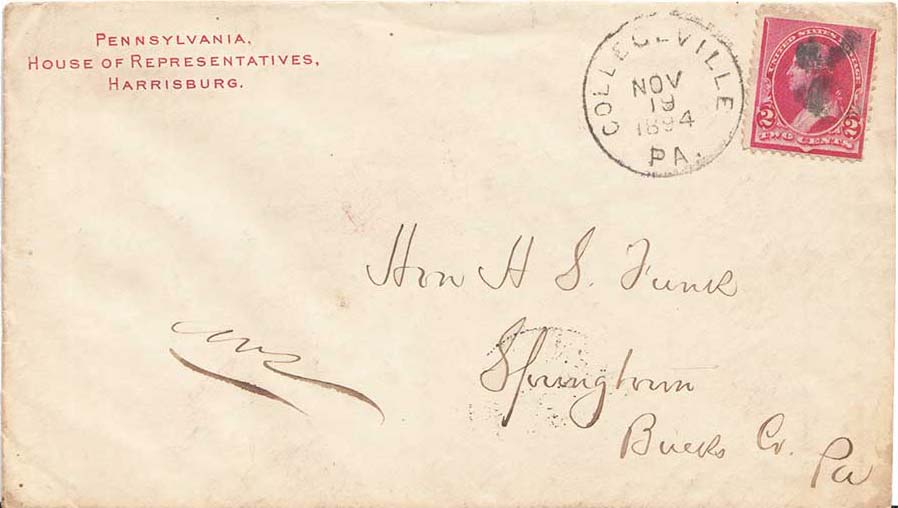 PENNSYLVANIA,
HOUSE OF REPRESENTATIVES,
HARRISBURG.
COLLEGEVILLE
NOV
19
1894
PA.
UNITED STATES POSTAGE
2 2
TWO CENTS
Hon H S. Funk
Springtown
Bucks Co.
Pa